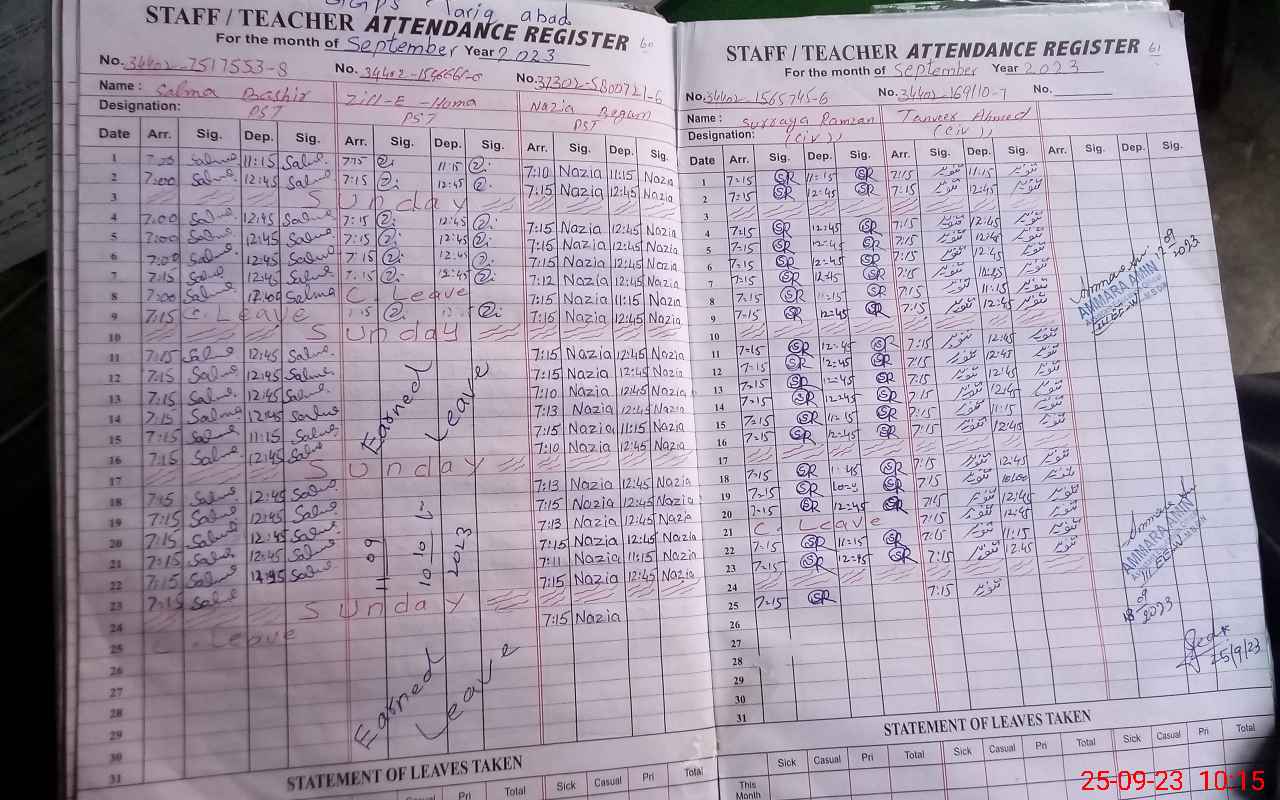 GGPS Tariq abad
STAFF / TEACHER ATTENDANCE REGISTER 60
For the month of September Year 2023
No. 34402-7517553-8 No. No. 37302-5800721-6
Name : Salma Bashir Zill-E-Homa Nazia Begum
Designation: PST PST PST
Date Arr. Sig. Dep. Sig. Arr. Sig. Dep. Sig. Arr. Sig. Dep. Sig.
1 7:00 Salma 11:15 Salma 7:15 11:15 7:10 Nazia 11:15 Nazia
2 7:00 Salma 12:45 Salma 7:15 12:45 7:15 Nazia 12:45 Nazia
3 Sunday
4 7:00 Salma 12:45 Salma 7:15 12:45 7:15 Nazia 12:45 Nazia
5 7:00 Salma 12:45 Salma 7:15 12:45 7:15 Nazia 12:45 Nazia
6 7:00 Salma 12:45 Salma 7:15 12:45 7:15 Nazia 12:45 Nazia
7 7:15 Salma 12:45 Salma 7:15 12:45 7:12 Nazia 12:45 Nazia
8 7:00 Salma Salma C. Leave 7:15 Nazia 11:15 Nazia
9 7:15 C. Leave 7:15 Nazia 12:45 Nazia
10 Sunday
11 7:15 Salma 12:45 Salma 7:15 Nazia 12:45 Nazia
12 7:15 Salma 12:45 Salma 7:15 Nazia 12:45 Nazia
13 7:15 Salma 12:45 Salma 7:10 Nazia 12:45 Nazia
14 7:15 Salma 12:45 Salma 7:13 Nazia 12:45 Nazia
15 7:15 Salma 11:15 Salma 7:15 Nazia 11:15 Nazia
16 7:15 Salma 12:45 Salma 7:10 Nazia 12:45 Nazia
Earned Leave
17 Sunday
18 7:15 Salma 12:45 Salma 7:13 Nazia 12:45 Nazia
19 7:15 Salma 12:45 Salma 7:15 Nazia 12:45 Nazia
20 7:15 Salma 12:45 Salma 7:13 Nazia 12:45 Nazia
21 7:15 Salma 12:45 Salma 7:15 Nazia 12:45 Nazia
22 7:15 Salma 12:45 Salma 7:11 Nazia 11:15 Nazia
23 7:15 Salma 7:15 Nazia 12:45 Nazia
11 09 10 10 2023
24 Sunday
25 C. Leave 7:15 Nazia
26
27
28
29
30
31
Earned Leave
STATEMENT OF LEAVES TAKEN
Sick Casual Pri Total
Casual Pri Total
STAFF / TEACHER ATTENDANCE REGISTER 61
For the month of September Year 2023
No. 34402-1565745-6 No. 34402-169110-7 No.
Name : Surraya Ramzan Tanveer Ahmed
Designation: (Civ) (Civ)
Date Arr. Sig. Dep. Sig. Arr. Sig. Dep. Sig. Arr. Sig. Dep. Sig.
1 7=15 SR 11=15 SR 7:15 تنویر 11:15 تنویر
2 7=15 SR 12=45 SR 7:15 تنویر 12:45 تنویر
3
4 7=15 SR 12=45 SR 7:15 تنویر 12:45 تنویر
5 7=15 SR 12=45 SR 7:15 تنویر 12:45 تنویر
6 7=15 SR 12=45 SR 7:15 تنویر 12:45 تنویر
7 7=15 SR 12=45 SR 7:15 تنویر 12:45 تنویر
8 7=15 SR 11=15 SR 7:15 تنویر 11:15 تنویر
9 7=15 SR 12=45 SR 7:15 تنویر 12:45 تنویر
AMMARA AMIN
12 09 2023
10
11 7=15 SR 12=45 SR 7:15 تنویر 12:45 تنویر
12 7=15 SR 12=45 SR 7:15 تنویر 12:45 تنویر
13 7=15 SR 12=45 SR 7:15 تنویر 12:45 تنویر
14 7=15 SR 12=45 SR 7:15 تنویر 12:45 تنویر
15 7=15 SR 11=15 SR 7:15 تنویر 11:15 تنویر
16 7=15 SR 12=45 SR 7:15 تنویر 12:45 تنویر
17
18 7=15 SR SR 7:15 تنویر 12:45 تنویر
19 7=15 SR SR 7:15 تنویر تنویر
20 7=15 SR 12=45 SR 7:15 تنویر 12:45 تنویر
21 C. Leave 7:15 تنویر 12:45 تنویر
22 7=15 SR 11=15 SR 7:15 تنویر 11:15 تنویر
23 7=15 SR 12=45 SR 7:15 تنویر 12:45 تنویر
AMMARA AMIN
18 09 2023
24
25 7=15 SR 7:15 تنویر
26
27
28
29
30
31
25/9/23
STATEMENT OF LEAVES TAKEN
Sick Casual Pri Total Sick Casual Pri Total Sick Casual Pri Total
This Month
25-09-23 10:15